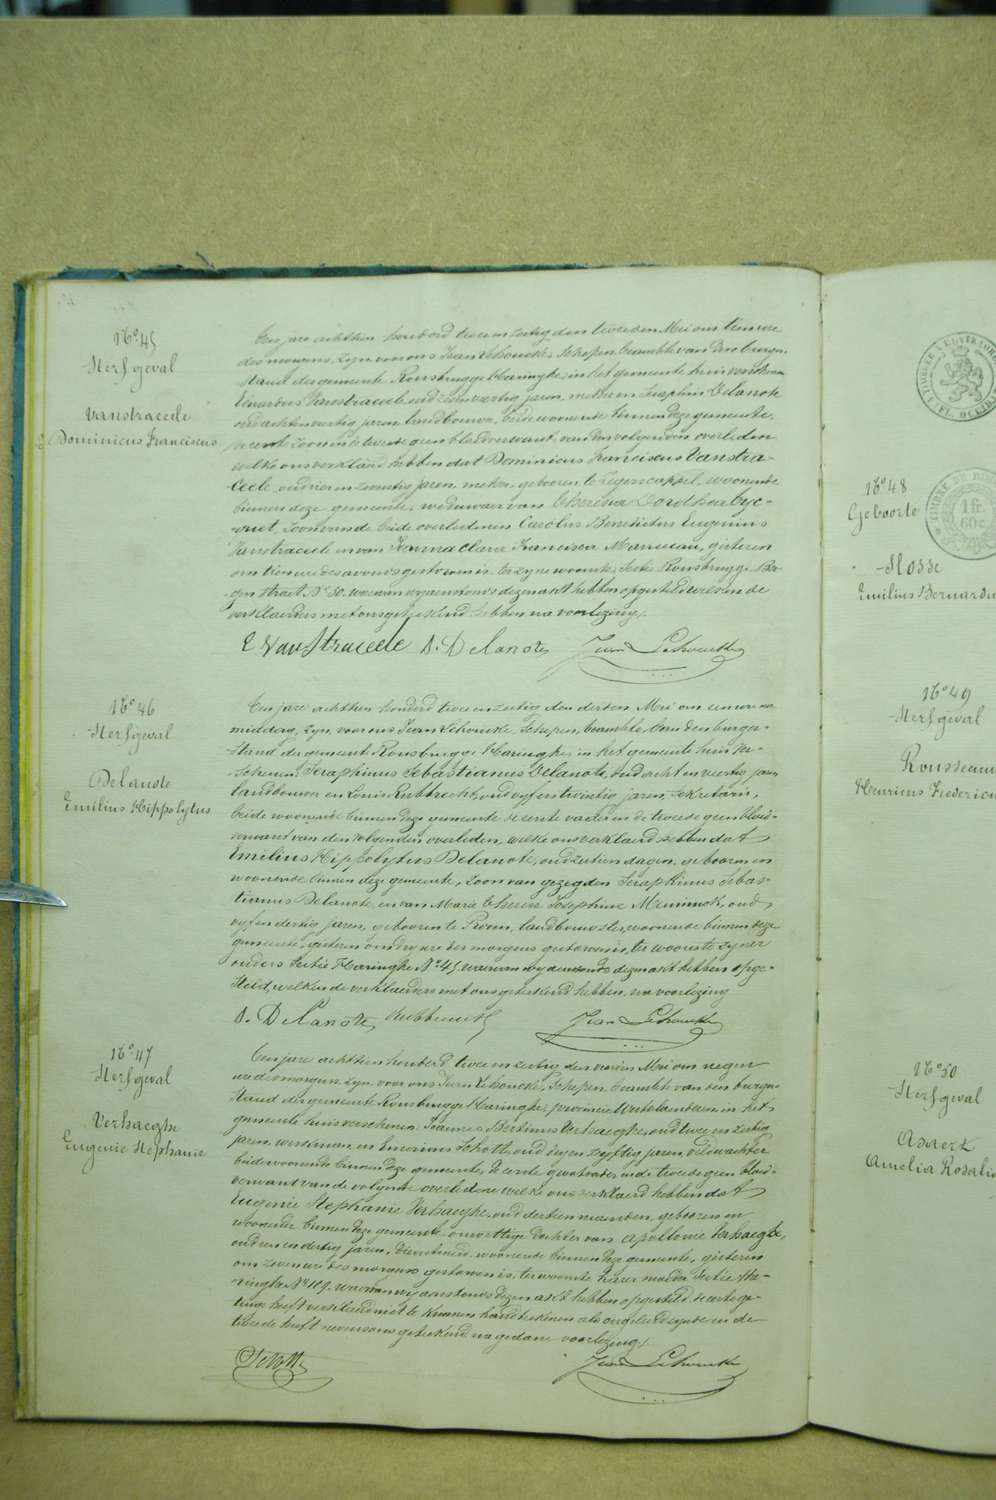 N° 45
Sterfgeval
Vanstraceele
Dominicus Franciscus
Ten jare achttien honderd twee en zestig den tweeden Mei om tien ure
des morgens, zyn voor ons Jean Schoucke, Schepen, beamble van den burger-
stand der gemeente Rousbrugge Haringhe, in het gemeente huis verschenen
Eduardus Vanstraceele, oud veertig jaren, en Seraphin Delanote
oud acht en veertig jaren, landbouwer, beide woonende binnen deze gemeente,
de eerste zoon en de tweede geen bloedverwant, van den volgenden overleden
welke ons verklaard hebben dat Dominicus Franciscus Vanstra-
ceele, oud en zeventig jaren, geboren te woonende
binnen deze gemeente, weduwaer van Theresia Dorothea Cyc-
zoon van de beide overledenen Carolus Benedictus Eugenius
Vanstraceele en van Joanna Clara Francisca gisteren
om tien ure des avonds gestorven is, ter zyne woonste, Sectie Rousbrugge Ber-
gen straet N° 50. waervan wy aenstonds dezen akt hebben opgesteld welken de
verklaerders met ons geteekend hebben na voorlezing.
E Vanstraceele S. Delanote Jean Schoucke
N° 46
Sterfgeval
Delanote
Emilius Hippolytus
Ten jare achttien honderd twee en zestig den derden Mei om een ure na
middag, zyn voor ons Jean Schoucke, Schepen, beamble van den burger-
stand der gemeente Rousbrugge Haringhe, in het gemeente huis ver-
schenen Seraphinus Sebastianus Delanote, oud acht en veertig jaren
landbouwer en Louis oud vyf en twintig jaren, sekretaris,
beide woonende binnen deze gemeente de eerste vader en de tweede geen bloed-
verwant van den volgenden overleden, welke ons verklaerd hebben dat
Emilius Hippolytus Delanote, oud zestien dagen, geboren en
woonende binnen deze gemeente, zoon van gezegden Seraphinus Sebas-
tianus Delanote en van Marie Theresia Josephine oud
vyf en dertig jaren, geboren te landbouwster, woonende binnen deze
gemeente, gisteren om dry ure des morgens gestorven is, ter woonste zyner
ouders Sectie Haringhe N° 45. waervan wy aenstonds dezen akt hebben opge-
steld, welken de verklaerders met ons geteekend hebben, na voorlezing
S. Delanote Jean Schoucke
N° 47
Sterfgeval
Verhaeghe
Eugenie Stephanie
Ten jare achttien honderd twee en zestig den vierden Mei om negen
ure des morgens, zyn voor ons Jean Schoucke, Schepen, beamble van den burger-
stand der gemeente Rousbrugge Haringhe, provincie Westvlaenderen in het
gemeente huis verschenen Joannes Bertinus Verhaeghe, oud twee en zestig
jaren, werkman, en Schotte, oud zeven en vyftig jaren, veldwachter
beide woonende binnen deze gemeente, de eerste grootvader, en de tweede geen bloed-
verwant van de volgende overledene welke ons verklaerd hebben dat
Eugenie Stephanie Verhaeghe, oud dertien maenden, geboren en
woonende binnen deze gemeente, onwettige dochter van Apollonie Verhaeghe,
oud en dertig jaren, dienstmeid, woonende binnen deze gemeente, gisteren
om zeven ure des morgens gestorven is, ter woonste harer moeder Sectie Ha-
ringhe N° 119. waervan wy aenstonds dezen akt hebben opgesteld, de eerste ge-
tuige heeft verklaerd niet te kunnen handteekenen als ongeleerd zynde en de
tweede heeft nevens ons geteekend na gedane voorlezing.
Schotte Jean Schoucke
N° 48
Geboorte
Hosse
Emilius Bernardu
TIMBRE DE D
1 fr.
60 c.
N° 49
Sterfgeval
Rousseau
Henricus Fredericu
N° 50
Sterfgeval
Asaert
Amelia Rosalie